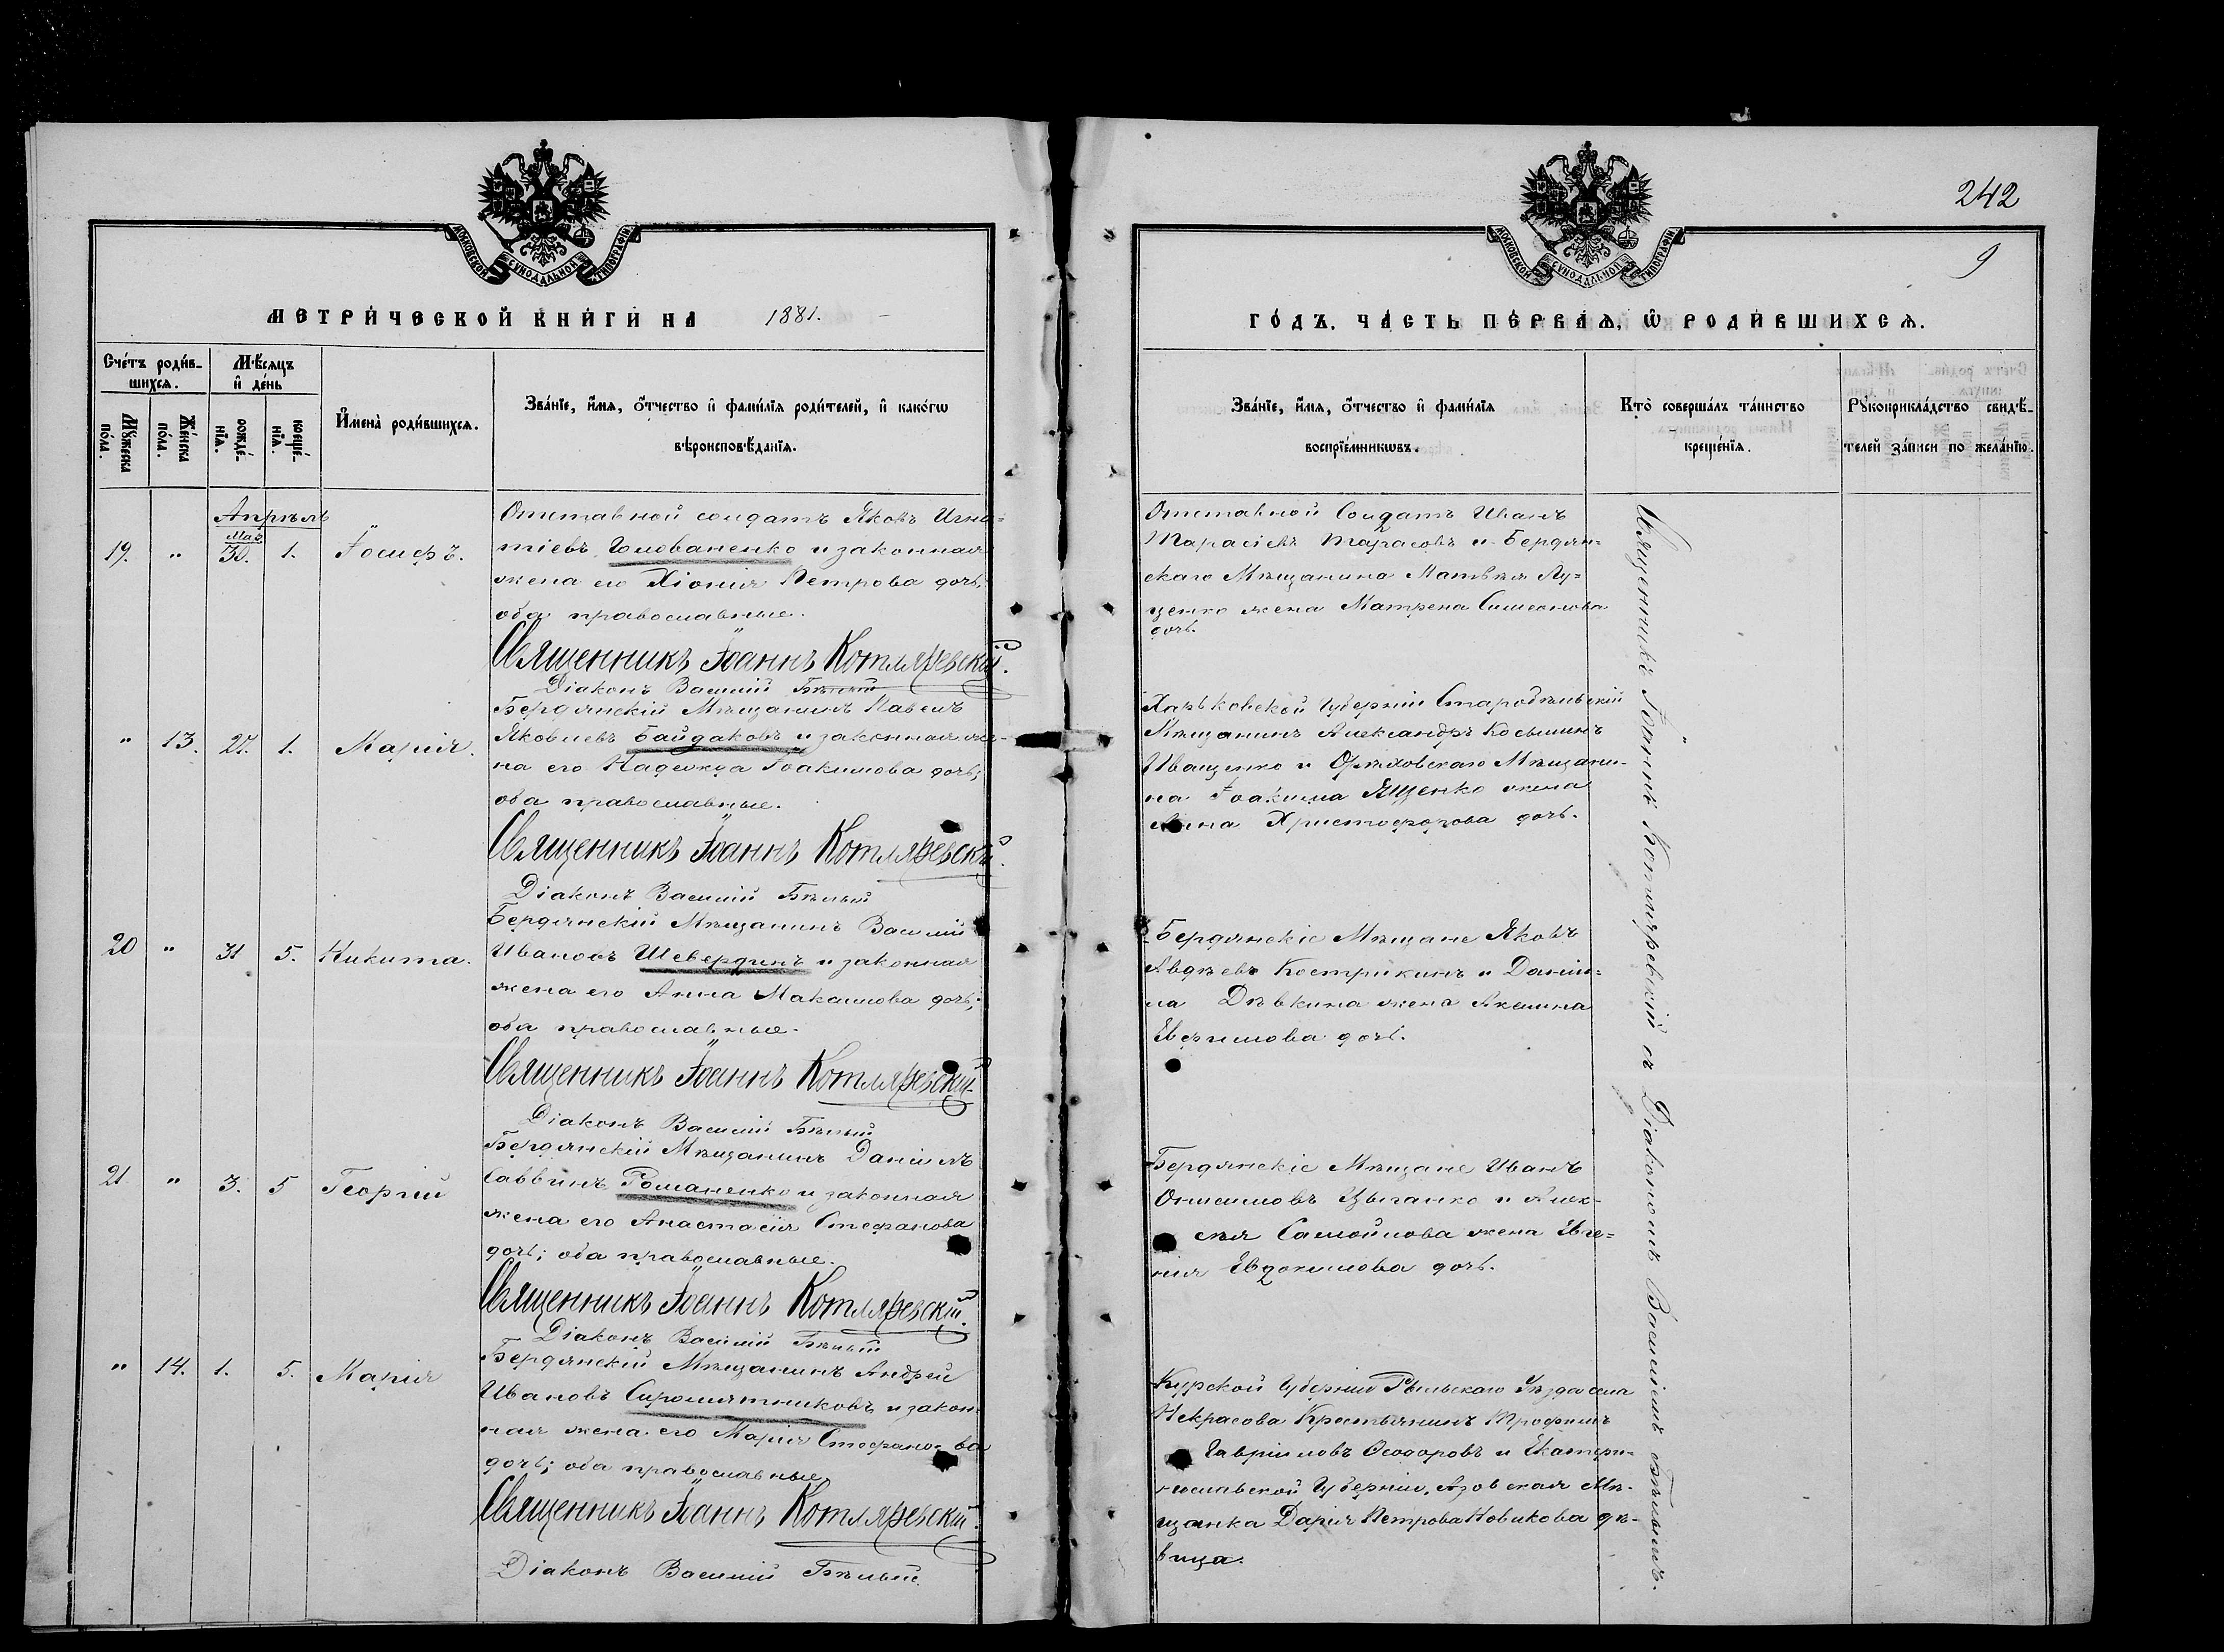 242
9
МОСКОВСКОЙ СѴНОДАЛЬНОЙ ТИПОГРАФІИ
МОСКОВСКОЙ СѴНОДАЛЬНОЙ ТИПОГРАФІИ
МЕТРИ́ЧЕСКОЙ КНИ́ГИ НА 1881.
ГО́ДЪ, ЧА́СТЬ ПЕ́РВАѦ, Ѡ҆ РОДИ́ВШИХСѦ.
Сче́тъ роди́в-
шихсѧ.
Мꙋ́жеска по́ла.
Же́нска по́ла.
Мѣ́сѧцъ
и҆ де́нь
рожде́-
нїѧ.
креще́-
нїѧ.
И҆мена̀ роди́вшихсѧ.
Зва́нїе, и҆́мѧ, ѻ҆́тчество и҆ фами́лїѧ роди́телей, и҆ како́гѡ
вѣроисповѣ́данїѧ.
Зва́нїе, и҆́мѧ, ѻ҆́тчество и҆ фами́лїѧ
воспрїе́мникѡвъ.
Кто̀ соверша́лъ та́инство
креще́нїѧ.
Рꙋкоприкла́дство свидѣ́-
телей за́писи по жела́нїю.
Апрѣль
Маъ
19. " 30. 1. Іосифъ.
Отставной солдатъ Яковъ Игна=
тіевъ Голованенко и законная
жена его Хіонія Петрова дочь;
оба православные.
Священникъ Іоаннъ Котляревскій.
Діаконъ Василій Бѣлый
Отставной Солдатъ Иванъ
Тарасіевъ Тарасовъ и Бердян=
скаго Мѣщанина Матвѣя Лу=
ценко жена Матрена Симеонова
дочь.
" 13. 27. 1. Марія.
Бердянскій Мѣщанинъ Павелъ
Яковлевъ Байдаковъ и законная же-
на его Надежда Іоакимова дочь;
оба православные.
Священникъ Іоаннъ Котляревскій.
Діаконъ Василій Бѣлый
Харьковской Губерніи Старобѣльскій
Мѣщанинъ Александръ Косьминъ
Иващенко и Орѣховскаго Мѣщани-
на Іоакима Ященко жена
Анна Христофорова дочь.
20 " 31 5. Никита.
Бердянскій Мѣщанинъ Василій
Ивановъ Шевердинъ и законная
жена его Анна Максимова дочь;
оба православные.
Священникъ Іоаннъ Котляревскій.
Діаконъ Василій Бѣлый
Бердянскіе Мѣщане Яковъ
Авдѣевъ Кострикинъ и Даніи=
ла Дѣвкина жена Акилина
Евфимова дочь.
21. " 3. 5 Георгій
Бердянскій Мѣщанинъ Даніилъ
Саввинъ Романенко и законная
жена его Анастасія Стефанова
дочь; оба православные.
Священникъ Іоаннъ Котляревскій.
Діаконъ Василій Бѣлый
Бердянскіе Мѣщане Иванъ
Онисимовъ Цыганко и Алек-
сѣя Самойлова жена Евге=
нія Евдокимова дочь.
" 14. 1. 5. Марія
Бердянскій Мѣщанинъ Андрей
Ивановъ Сыромятниковъ и закон-
ная жена его Марія Стефано-ва
дочь; оба православные,
Священникъ Іоаннъ Котляревскій.
Діаконъ Василій Бѣлый.
Курской Губерніи Рыльскаго Уѣзда села
Некрасова Крестьянинъ Трофимъ
Гавріиловъ Ѳеодоровъ и Екатери-
нославской Губерніи, Азовская Мѣ-
щанка Дарія Петрова Новикова дѣ-
вица.
Священникъ Іоаннъ Котляревскій съ Діакономъ Василіемъ Бѣлымъ.